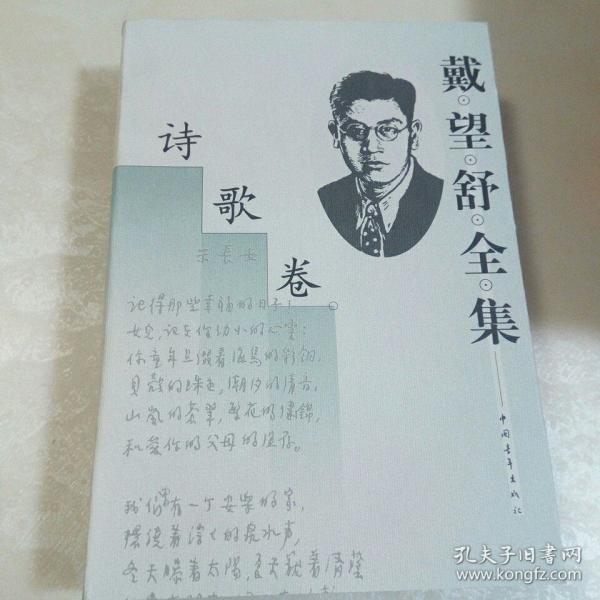 戴·望·舒·全·集
中国青年出版社
诗歌卷。
示长女
记得那些幸福的日子！
女儿，记在你幼小的心灵：
你童年点缀着海鸟的彩翎，
贝壳的珠色，潮汐的清音，
山岚的苍翠，繁花的绣锦，
和爱你的父母的温存。
我们曾有一个安乐的家，
环绕着淙淙的泉水声，
冬天曝着太阳，夏天笼着清荫
孔夫子旧书网
www.kongfz.com